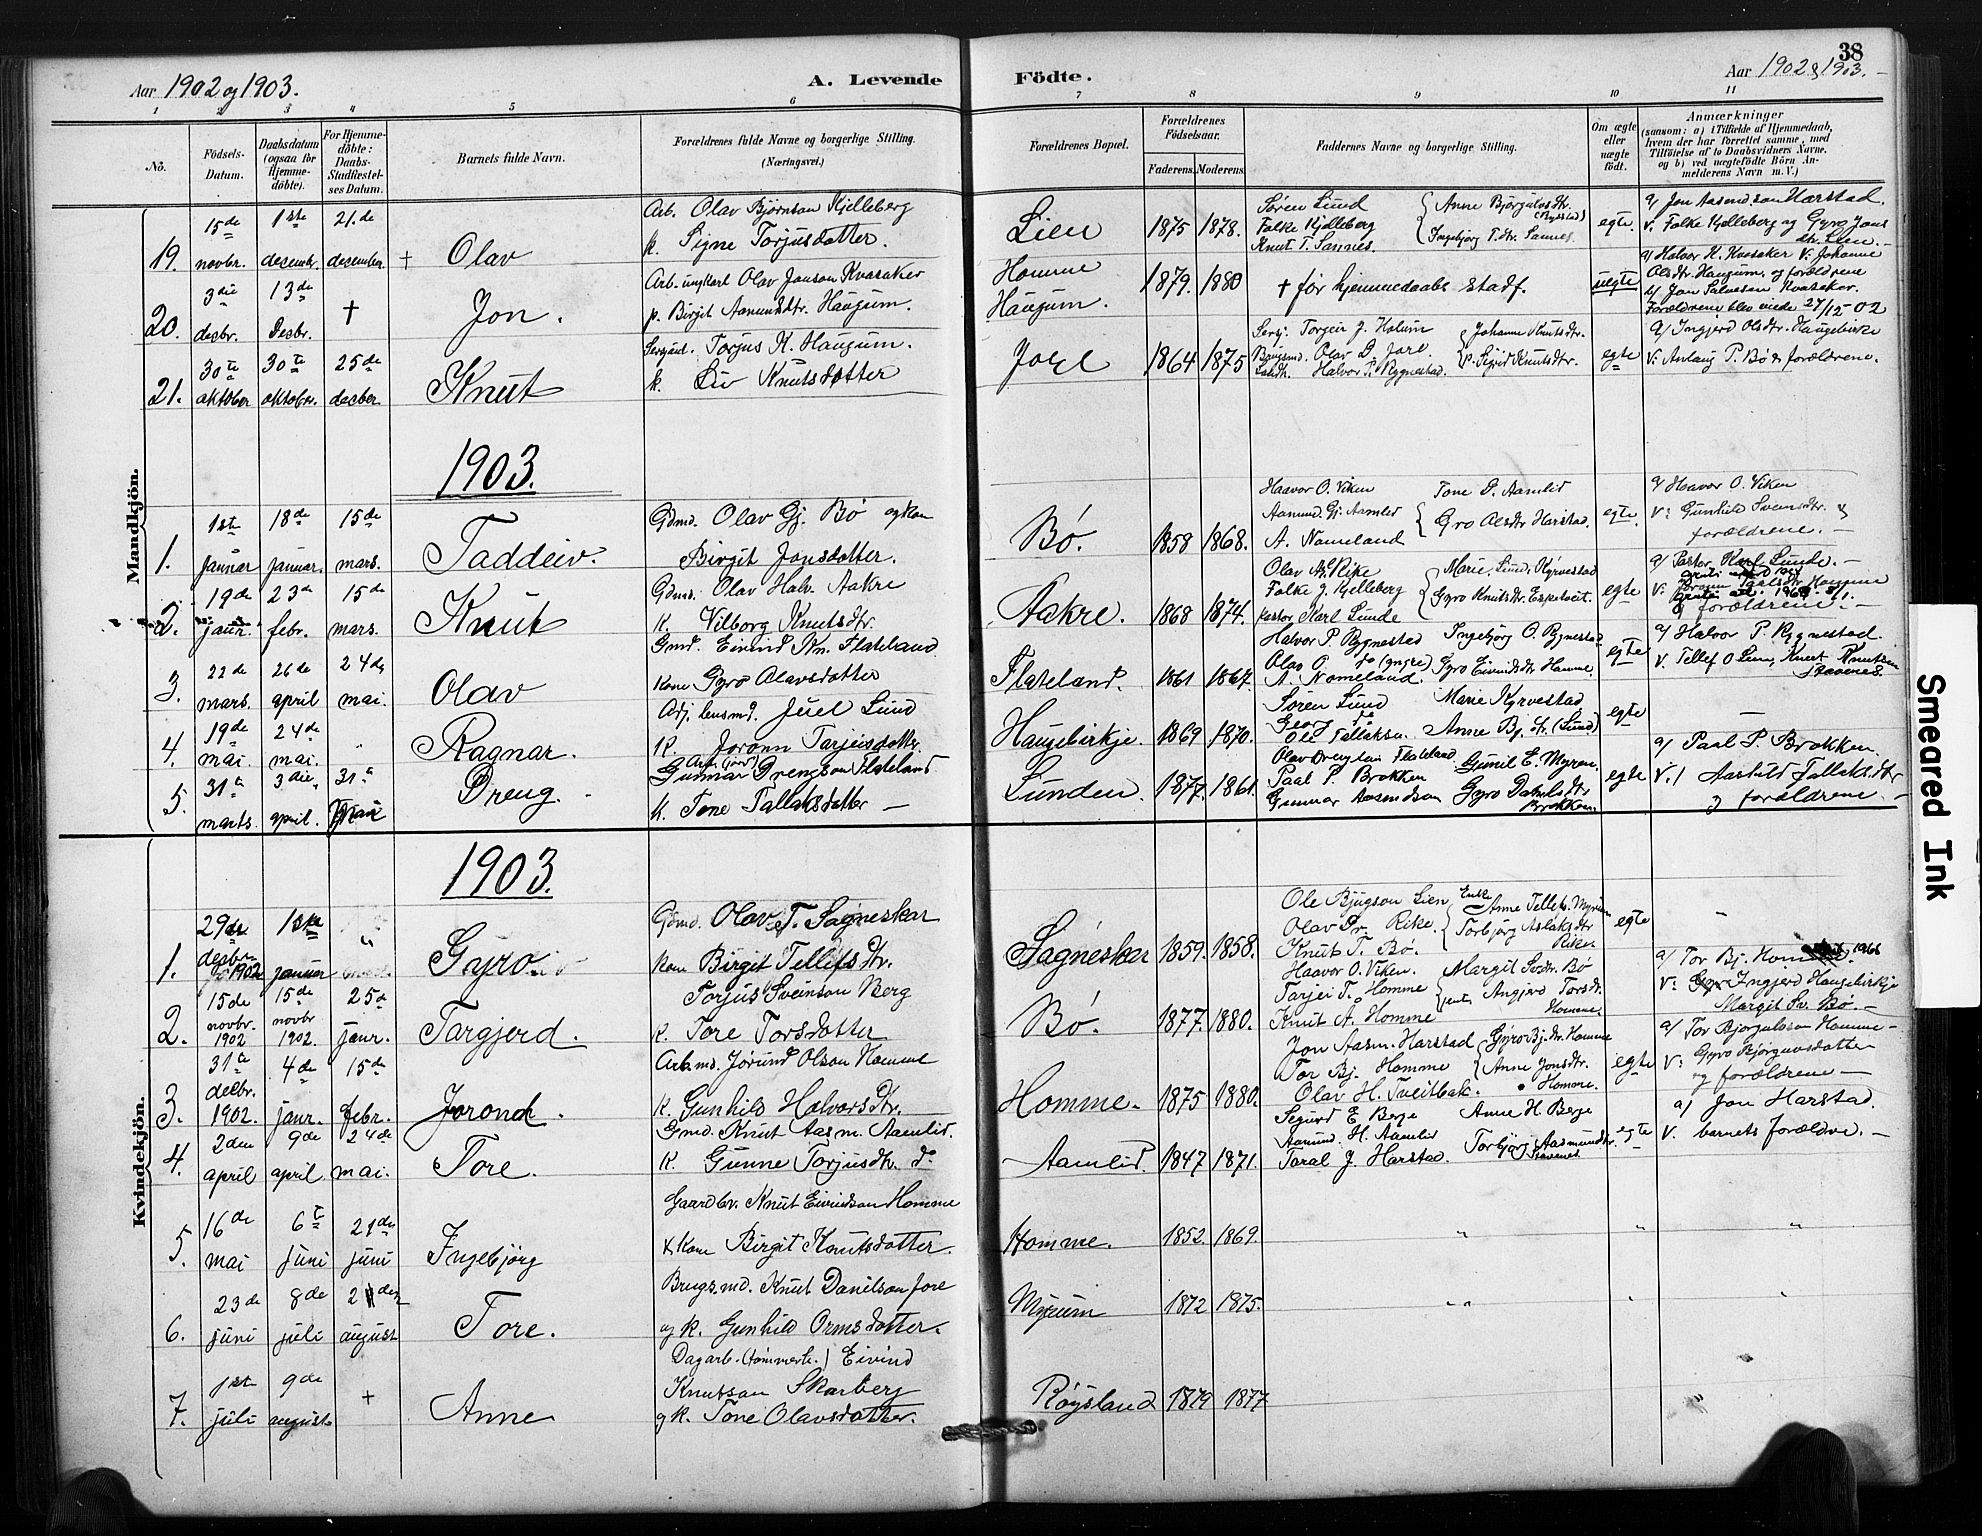 38
Aar 1902 og 1903.
A. Levende Födte.
Aar 1902 & 1903.
1 2 3 4 5 6 7 8 9 10 11
No.
Födsels-Datum.
Daabsdatum (ogsaa for Hjemme-döbte).
For Hjemme-döbte: Daabs-Stadfæstel-ses Datum.
Barnets fulde Navn.
Forældrenes fulde Navne og borgerlige Stilling.
(Næringsvei.)
Forældrenes Bopæl.
Forældrenes Födselsaar.
Faderens. Moderens.
Faddernes Navne og borgerlige Stilling.
Om ægte eller uægte födt.
Anmærkninger
(saasom: a) i Tilfælde af Hjemmedaab,
hvem der har forrettet samme, med
Tilföielse af to Daabsvidners Navne,
og b) ved uægtefödte Börn An-
melderens Navn m. V.)
Mandkjön.
19. 15de novbr. 1ste decembr. 21.de december + Olav
Arb. Olav Bjørnson Kjelleberg
k. Signe Torjusdotter.
Lien 1875 1878.
Søren Lund
Folke Kjelleberg
Knut T. Sannes.
Anne Bjørgulvsdtr. (Rystad)
Ingebjørg T.dtr. Sannes.
egte.
a/ Jon Aasmundson Harstad.
V. Folke Kjelleberg og Gyro Jons
dtr. Lien.
20. 3die desbr. 13de Desbr. + Jon.
Arb. ungkarl Olav Jonson Kvasaker
p. Birgit Aamundsdtr. Haugum.
Homme
Haugum. 1879. 1880
+ før hjemmedaabs stadf.
uegte
a/ Halvor K. Kvasaker V: Johanne
Olsdtr. Haugum, og forældrene
b/ Jon Salvesen Kvasaker.
Forældrene blev viede 27/12-02
21. 30te oktober 30te oktobr. 25de decber Knut
Sersjant. Torjus K. Haugum.
k. Liv Knutsdotter
Jore 1864 1875
Sersj. Torgeir J. Holum
Brugsmd. Olav D. Jore.
Landh. Halvor P. Rygnestad.
Johanne Knutsdtr.
p. Sigrid Knutsdtr.
egte
a/ Ingjerd Olsdtr. Haugebirke
V: Anlaug P. Bø & forældrene.
1903.
1. 1ste januar 18de januar. 15de mars. Taddeiv.
Gdmd. Olav Gj. Bø og kon
Birgit Jonsdotter.
Bø. 1858 1868.
Haavor O. Viken
Aamund Gj. Aamlid
A. Nomeland
Tone D. Aamlid
Gro Olsdtr Harstad.
egte.
a/ Haavor O. Viken
V: Gunhild Svensdtr. &
forældrene.
2. 19de janr. 23de febr. 15de mars. Knut
Gdmd. Olav Halv. Aakre
k. Vilborg Knutsdtr.
Aakre. 1868 1874.
Olav Rike
Folke J. Kjelleberg
Pastor Karl Lunde
Marie Lund, Kyrvestad
Gyro Knutsdtr. Espetveit.
egte
a/ Pastor Karl Lunde.
& forældrene.
3. 22de mars. 26de april 24de mai. Olav
Gmd. Eivind Kn. Flateland
Kone Gyro Olavsdotter
Flateland. 1861 1867.
Halvor P. Rygnestad
Olav O. do (yngre)
A. Nomeland.
Ingebjørg O. Rygnestad
Gyro Eivindsdtr Homme.
egte
a/ Halvor P. Rygnestad.
V. Tellef O Lien, Knut Knutson
Stavenes.
4. 19de mai. 24de mai. " Ragnar.
Adj. lensmd. Juel Lund
k. Joronn Tarjeisdotter
Haugebirkje. 1869 1870.
Søren Lund
Georg do
Ole Tallaksen.
Marie Kyrvestad
Anne Bj. dtr. (Lund)
egte
5. 31te marts. 3die april. 31te Mai Dreng.
Arb. (jord)
Gunnar Drengson Flateland
k. Tone Tallaksdatter
Lunden. 1877. 1861.
Olav Drengson Flateland
Paal P. Brokken
Gunnar Aasmundson
Gunil E. Myren
Gyro Danielsdtr
Brokken.
egte
a/ Paal P. Brokken.
V./ Aashild Tallaksdtr
& forældrene.
Kvindekjön.
1903.
1. 29de desbr. 1902 1ste januar " Gyro
Gdmd. Olav T. Sagneskar
kone Birgit Tellefsdtr.
Sagneskar 1859. 1858.
Ole Bjugson Lien
Olav Dr. Rike.
Knut T. Bø.
Enke
Anne Tellefs. Myrum
Torbjørg Aslaksdtr
Riker
egte
"
2. 15de novbr. 1902 15de novbr 1902. 25de janr. Targjerd.
Torjus Sveinson Berg
k. Tore Torsdotter
Bø. 1877. 1880.
Haavor O. Viken.
Tarjei T. Homme
Knut A. Homme
Margit Svdtr. Bø
jente Angjerd Torsdt.
Homme.
a/ Tor Bj. Homme 1966
V: Ingjerd Haugebirkje
Margit Sv. Bø.
3. 31te decbr. 1902. 4de janr. 15de febr. Jorond.
Arb.md. Jørund Olson Homme
k. Gunhild Halvorsdtr.
Homme. 1875 1880.
Jon Aasm. Harstad
Tor Bj. Homme
Olav H. Tveitbak.
Gyro Bj. dtr. Homme
Anne Jonsdtr.
Homme.
egte
a/ Tor Bjorgulvson Homme
V: Gyro Bjørgulvsdatter
og forældrene
4. 2den april 9de april 24de mai. Tore.
Gmd. Knut Aasm. Aamlid.
k. Gunne Torjusdtr. do
Aamlid. 1847 1871.
Segurd E Berge
Aamund. H. Aamlid
Taral J. Harstad.
Anne H. Berge
Torbjørg Aasmundsdtr.
Stavenes.
egte
a/ Jon Harstad.
V. barnets forældre.
5. 16de mai 6te juni 21de juni Ingebjörg
Gaardbr. Knut Eivindson Homme
& Kone Birgit Knutsdotter.
Homme. 1852. 1869.
" " "
6. 23de juni 8de juli 2den august Tore.
Brugs.md. Knut Danielson Jore
og k. Gunhild Ormsdotter.
Myrum 1872 1875.
" " "
7. 1ste juli 9de august + Anne
Dagarb. (tømmerh.) Eivind
Knutson Skarberg
og k. Tone Olavsdotter.
Røysland 1879 1877
"
Smeared Ink